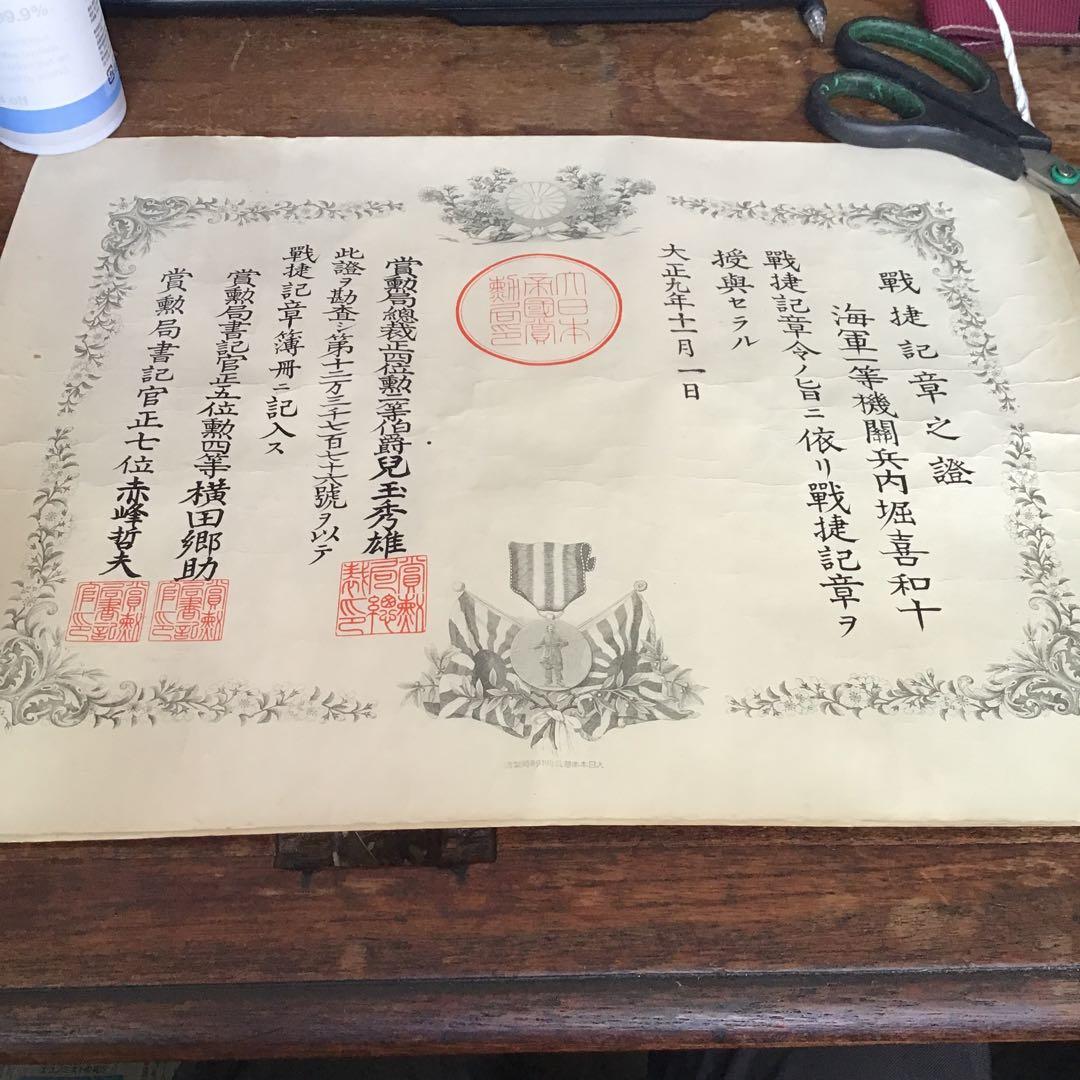 戰捷記章之證
海軍一等機關兵内堀喜和十
戰捷記章令ノ旨ニ依リ戰捷記章ヲ
授與セラル
大正九年十一月一日
大日本
帝國賞
勲局印
賞勲局總裁正四位勲二等伯爵兒玉秀雄
賞勲
局總
裁印
此證ヲ勘査シ第十二万三千七百七十六號ヲ以テ
戰捷記章簿冊ニ記入ス
賞勲局書記官正五位勲四等横田郷助
賞勲
局書記
官印
賞勲局書記官正七位赤峰哲夫
賞勲
局書記
官印
99.9%